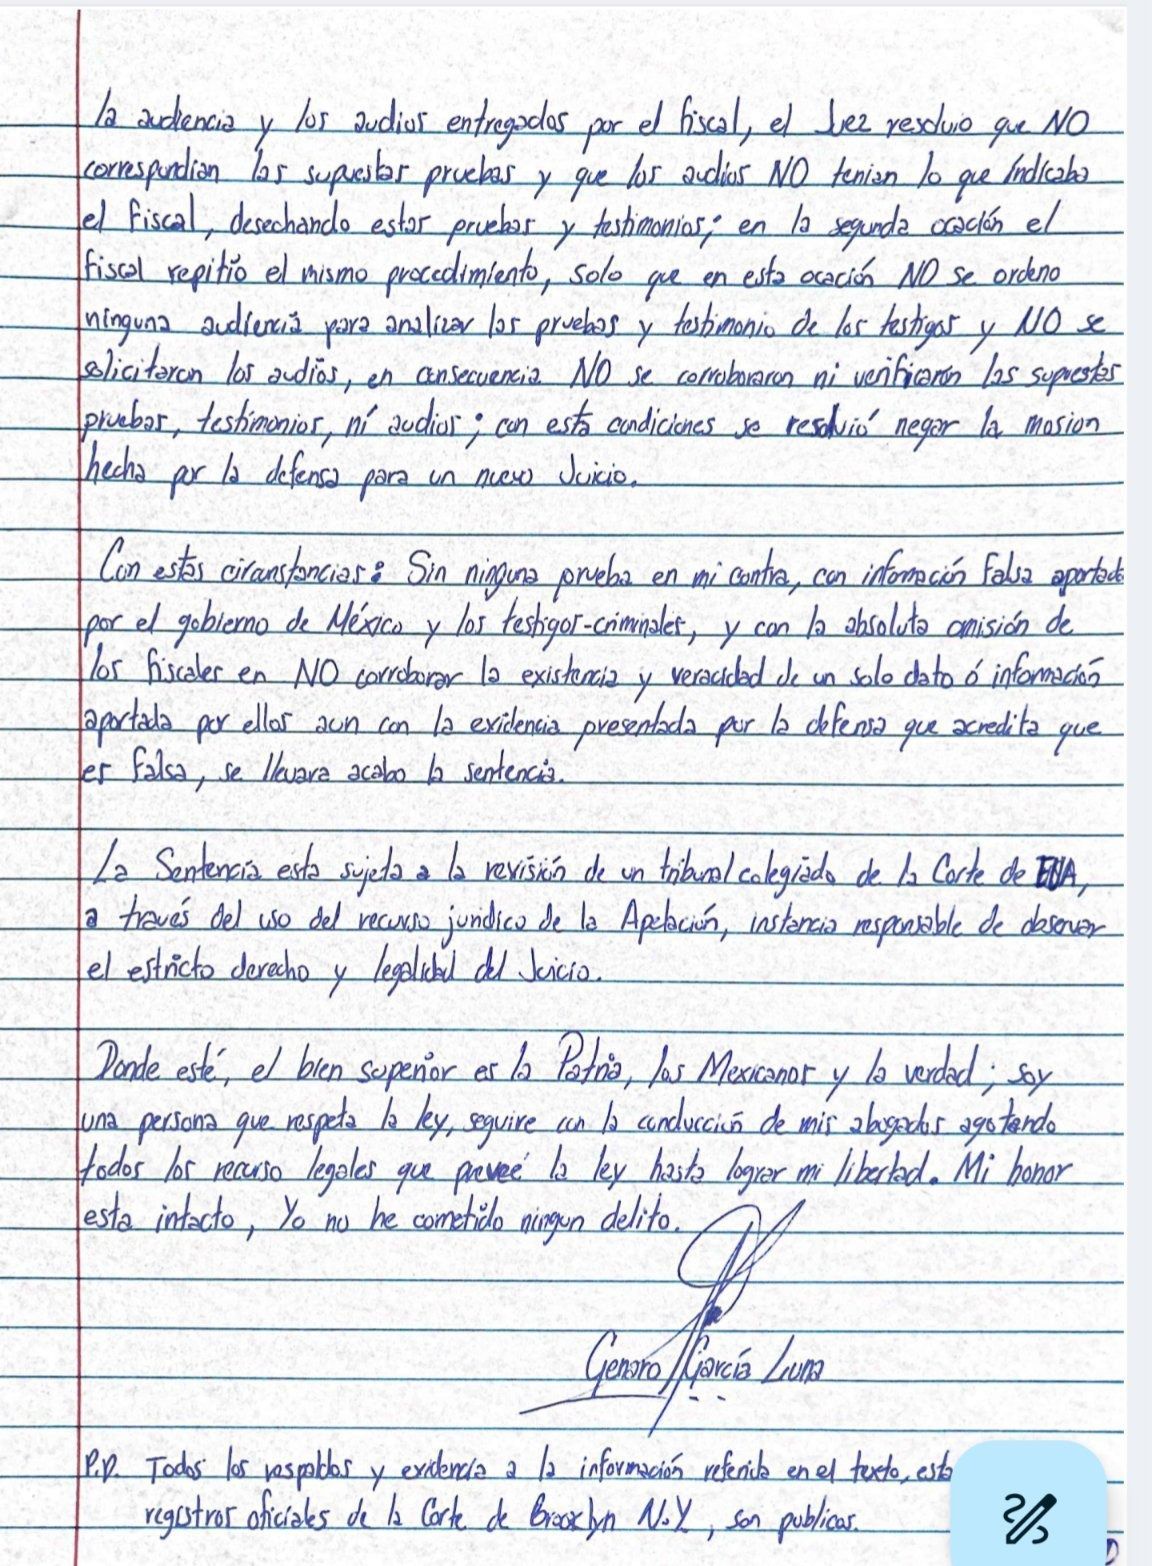 la audiencia y los audios entregados por el fiscal, el Juez resolvio que NO
correspondian las supuestas pruebas y que los audios NO tenian lo que indicaba
el fiscal, desechando estas pruebas y testimonios; en la segunda ocación el
fiscal repitio el mismo procedimiento, solo que en esta ocación NO se ordeno
ninguna audiencia para analizar las pruebas y testimonio de los testigos y NO se
solicitaron los audios, en consecuencia NO se corroboraron ni verificaron las supuestas
pruebas, testimonios, ní audios; con esta condiciones se resolvió negar la mosion
hecha por la defensa para un nuevo Juicio.
Con estas circunstancias: Sin ninguna prueba en mi contra, con información falsa aportada
por el gobierno de México y los testigos-criminales, y con la absoluta omisión de
los fiscales en NO corroborar la existencia y veracidad de un solo dato ó información
aportada por ellos aun con la evidencia presentada por la defensa que acredita que
es falsa, se llevara acabo la sentencia.
La Sentencia esta sujeta a la revisión de un tribunal colegiado de la Corte de EUA,
a través del uso del recurso jurídico de la Apelación, instancia responsable de observar
el estricto derecho y legalidad del Juicio.
Donde esté, el bien superior es la Patria, los Mexicanos y la verdad; soy
una persona que respeta la ley, seguire con la conducción de mis abogados agotando
todos los recurso legales que preveé la ley hasta lograr mi libertad. Mi honor
esta intacto, Yo no he cometido ningun delito.
Genaro García Luna
P.D. Todos los respaldos y evidencia a la información referida en el texto, esta
registros oficiales de la Corte de Brooklyn N.Y, son publicos.